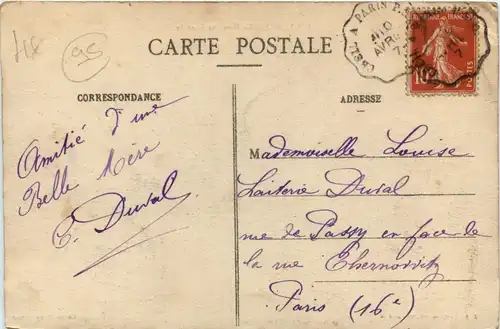 95
CARTE POSTALE
CREIL A PARIS P.
10
AVRIL
POSTES
10
CORRESPONDANCE
ADRESSE
Amitié d'une
Belle Mère
E. Duval
Mademoiselle Louise
Laiterie Duval
rue de Passy en face de
la rue Chernovitz
Paris (16e)